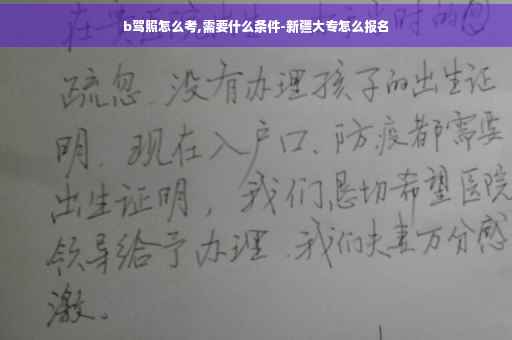 b驾照怎么考,需要什么条件-新疆大专怎么报名
疏忽.没有办理孩子的出生证
明.现在入户口、防疫都需要
出生证明，我们恳切希望医院
领导给予办理.我们夫妻万分感
激。